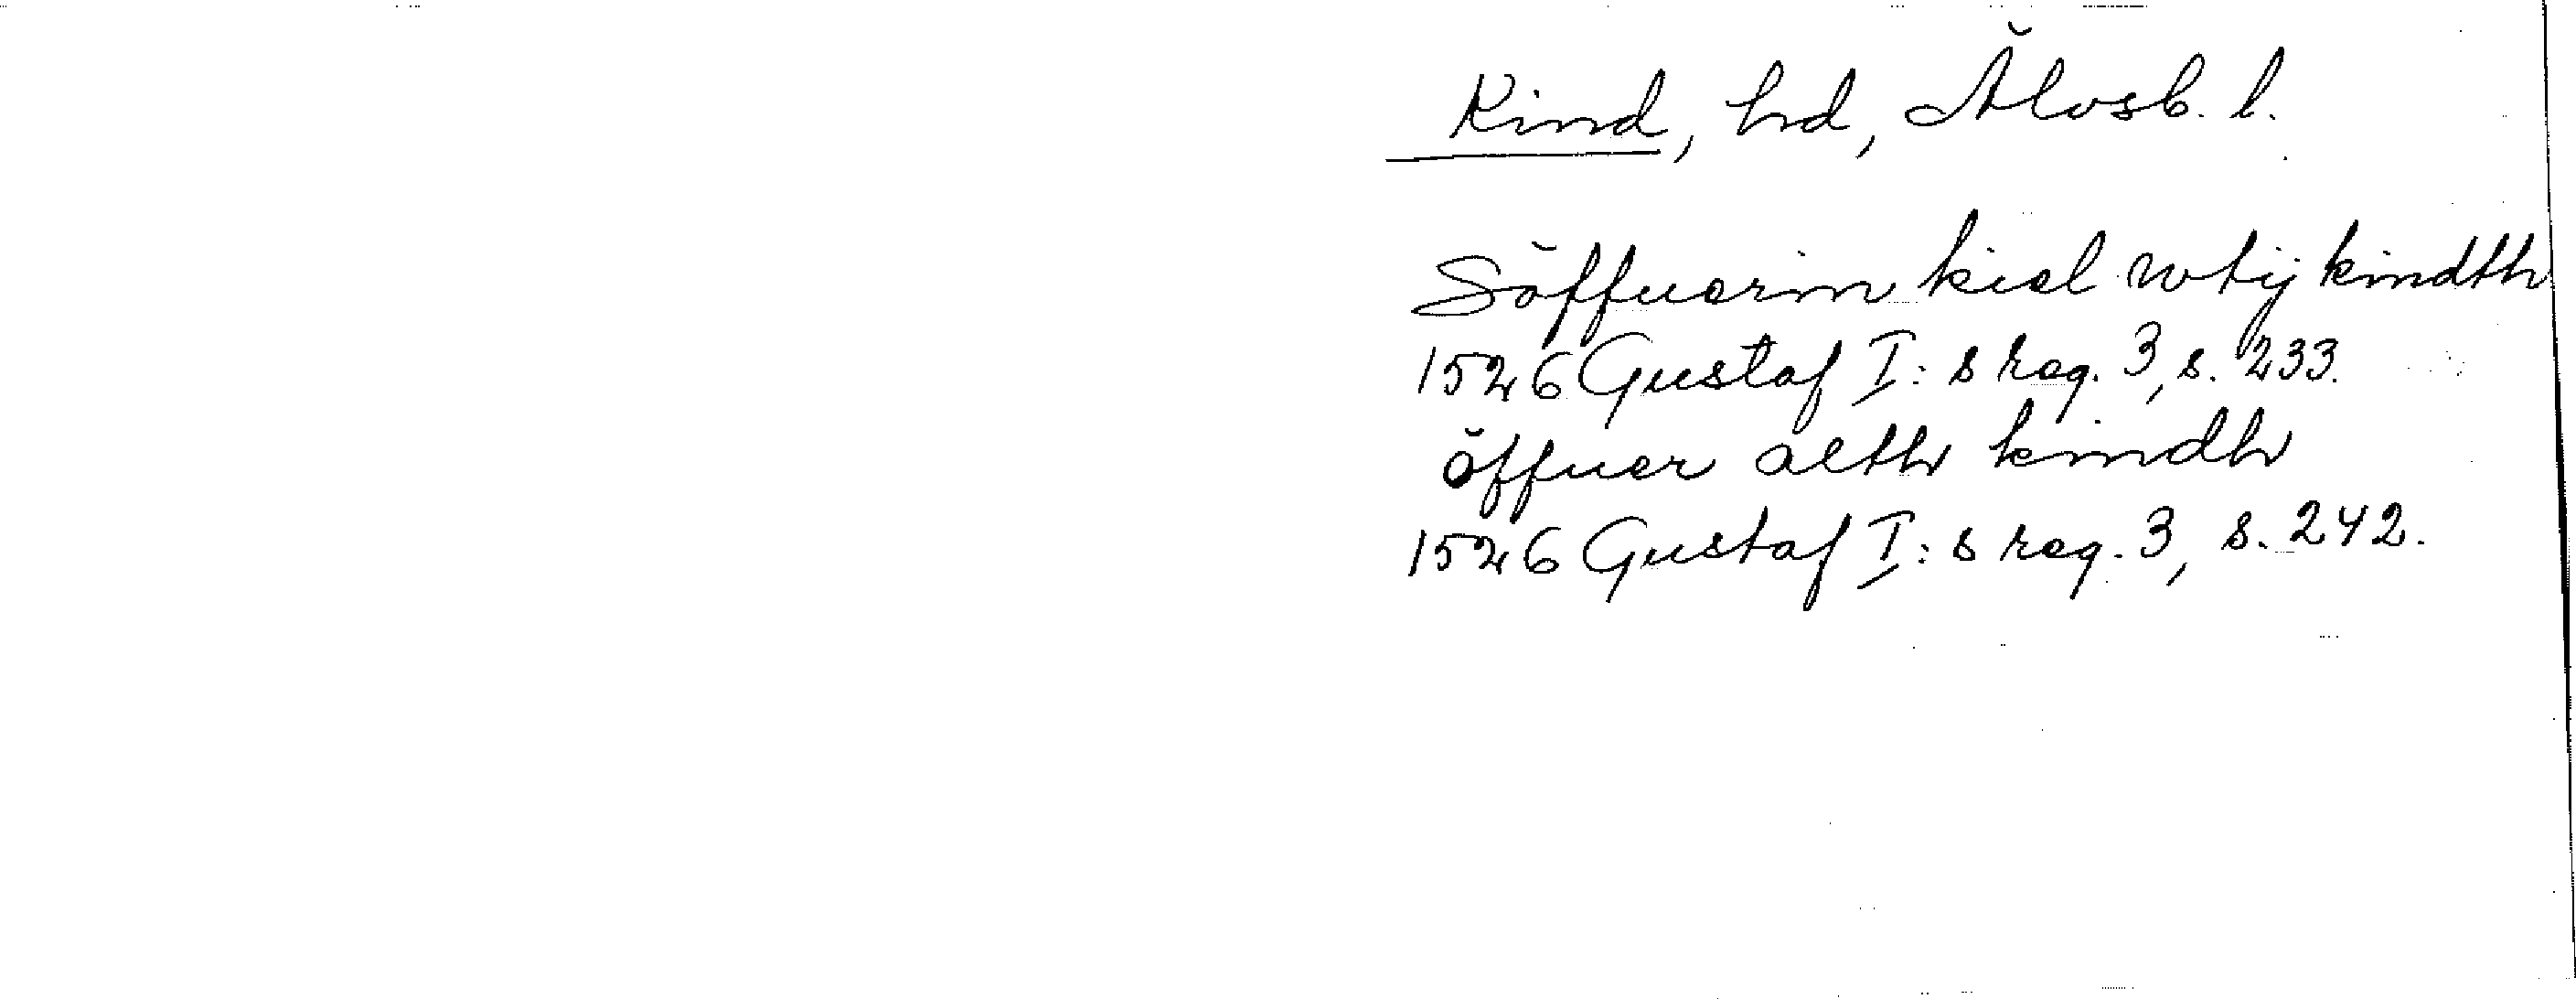 Kind, hd, Älvsb. l.
Söffuerin kiel wtij kindth
1526 Gustaf I:s reg. 3, s. 233.
öffuer alth kindh
1526 Gustaf I:s reg. 3, s. 242.